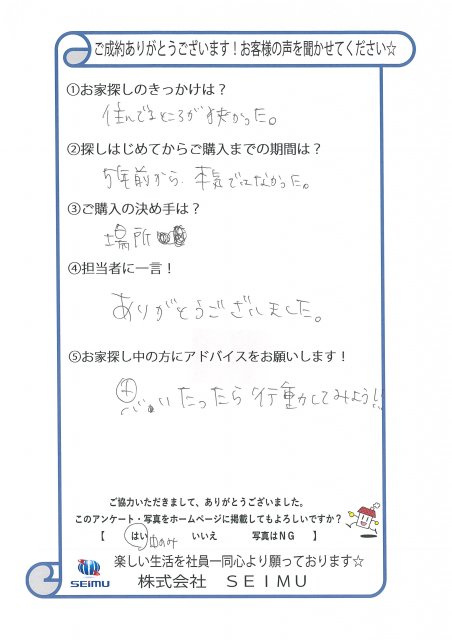 ご成約ありがとうございます！お客様の声を聞かせてください☆
①お家探しのきっかけは？
住んでるところが狭かった。
②探しはじめてからご購入までの期間は？
5年前から、本気ではなかった。
③ご購入の決め手は？
場所
④担当者に一言！
ありがとうございました。
⑤お家探し中の方にアドバイスをお願いします！
いたったら行動かしてみよう!!
ご協力いただきまして、ありがとうございました。
このアンケート・写真をホームページに掲載してもよろしいですか？
【 はい いいえ 写真はＮＧ 】
SEIMU
楽しい生活を社員一同心より願っております☆
株式会社 ＳＥＩＭＵ